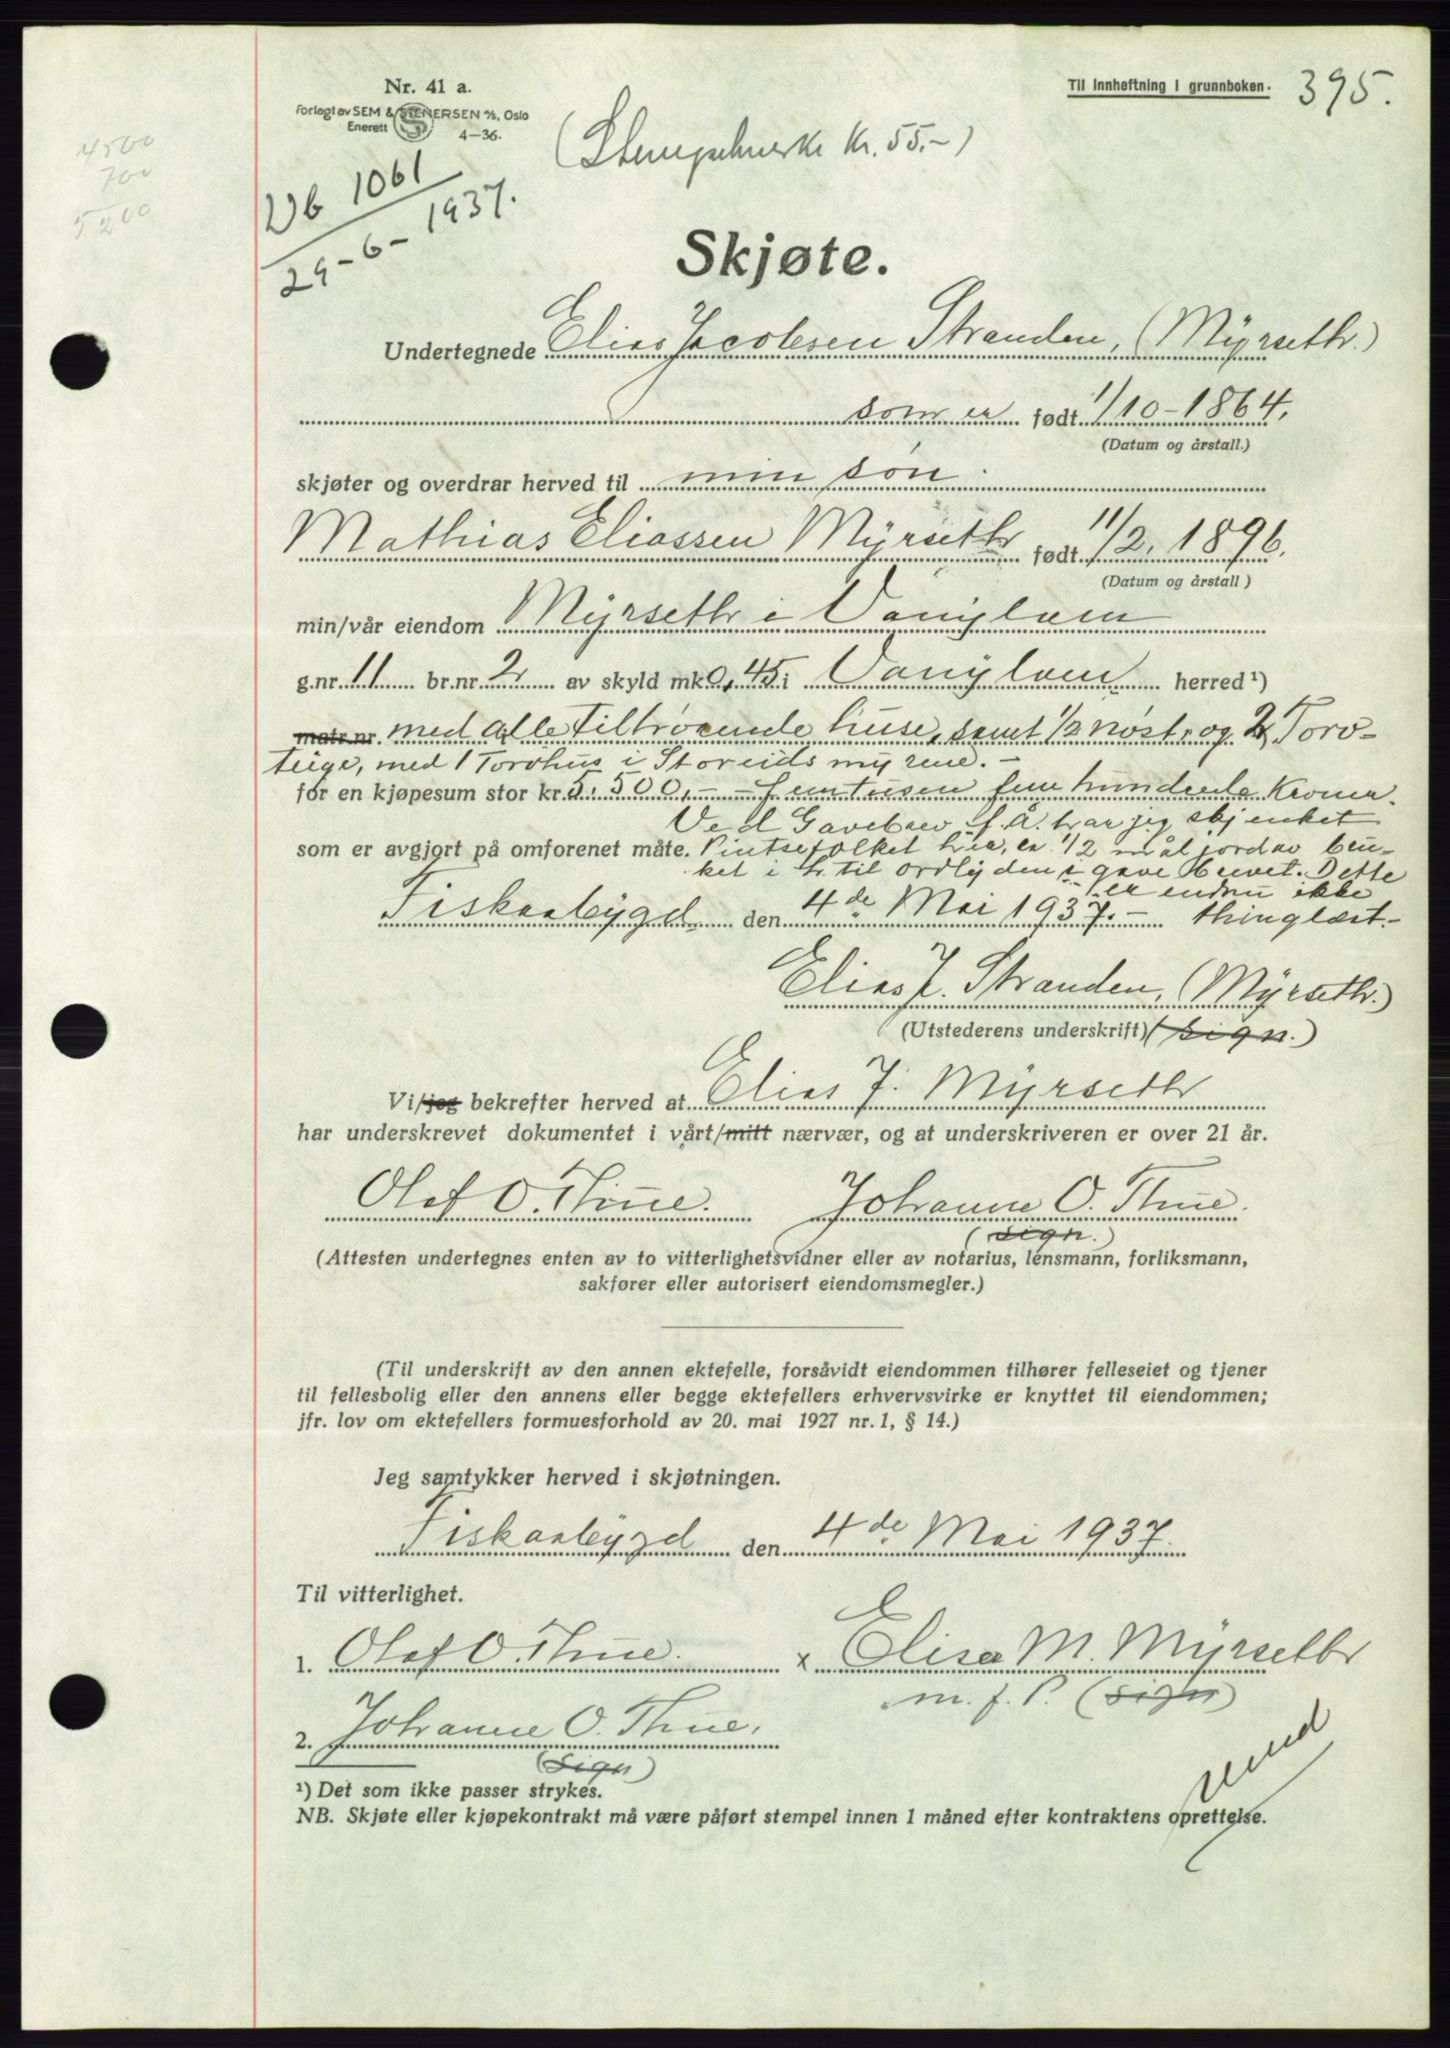 Nr. 41 a.
Forlagt av SEM & STENERSEN A/S, Oslo
Enerett 4—36.
Til innheftning i grunnboken. 395.
4500
700
5200
(Stempelmerke Kr. 55.-)
Vb 1061
29-6-1937.
Skjøte.
Undertegnede Elias Jacobsen Stranden, (Myrseth.)
som er født 1/10-1864.
(Datum og årstall.)
skjøter og overdrar herved til min søn.
Mathias Eliassen Myrseth født 11/2. 1896.
(Datum og årstall)
min/vår eiendom Myrseth i Vanylven
g.nr. 11 br.nr. 2 av skyld mk. 0,45 i Vanylven herred ¹)
matr.nr. med alle tilhørende huse, samt 1/2 nøst, og 2 Torv-
teige, med 1 Torvhus i Storeids myrene. -
for en kjøpesum stor kr. 5.500,- - femtusen fem hundrede Kroner.
Ved Gavebrev f. Å. har jeg skjenket
som er avgjort på omforenet måte. Pintsefolket her, ca. 1/2 mål jord av bru-
ket i h. til ordlyden i gave brevet. Dette
er endnu ikke
Fiskaabygd den 4de Mai 1937. - thinglæst.-
Elias J. Stranden, (Myrseth.)
(Utstederens underskrift) (sign.)
Vi/jeg bekrefter herved at Elias J. Myrseth
har underskrevet dokumentet i vårt/mitt nærvær, og at underskriveren er over 21 år.
Olaf O. Thue. Johanne O. Thue.
(sign.)
(Attesten undertegnes enten av to vitterlighetsvidner eller av notarius, lensmann, forliksmann,
sakfører eller autorisert eiendomsmegler.)
(Til underskrift av den annen ektefelle, forsåvidt eiendommen tilhører felleseiet og tjener
til fellesbolig eller den annens eller begge ektefellers erhvervsvirke er knyttet til eiendommen;
jfr. lov om ektefellers formuesforhold av 20. mai 1927 nr. 1, § 14.)
Jeg samtykker herved i skjøtningen.
Fiskaabygd den 4de Mai 1937.
Til vitterlighet.
1. Olaf O. Thue. x Elise M. Myrseth
m. f. P. (sign)
2. Johanne O. Thue.
(sign)
vend
¹) Det som ikke passer strykes.
NB. Skjøte eller kjøpekontrakt må være påført stempel innen 1 måned efter kontraktens oprettelse.